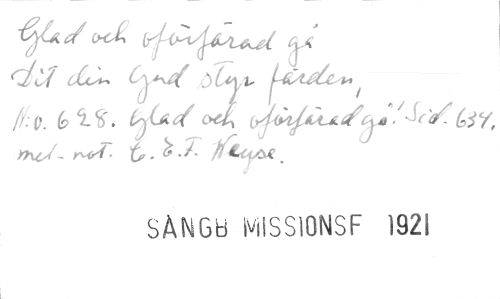 Glad och oförfärad gå
Dit din Gud styr färden,
N:o. 628. Glad och oförfärad gå! Sid. 634.
mel-not. C. E. F. Weyse.
SÅNGB MISSIONSF 1921